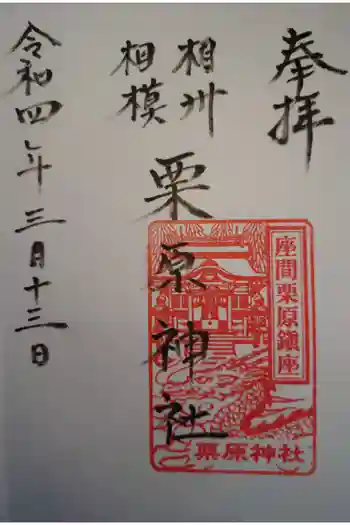 奉拝
相州
相模
栗原神社
座間栗原鎮座
栗原神社
令和四年三月十三日